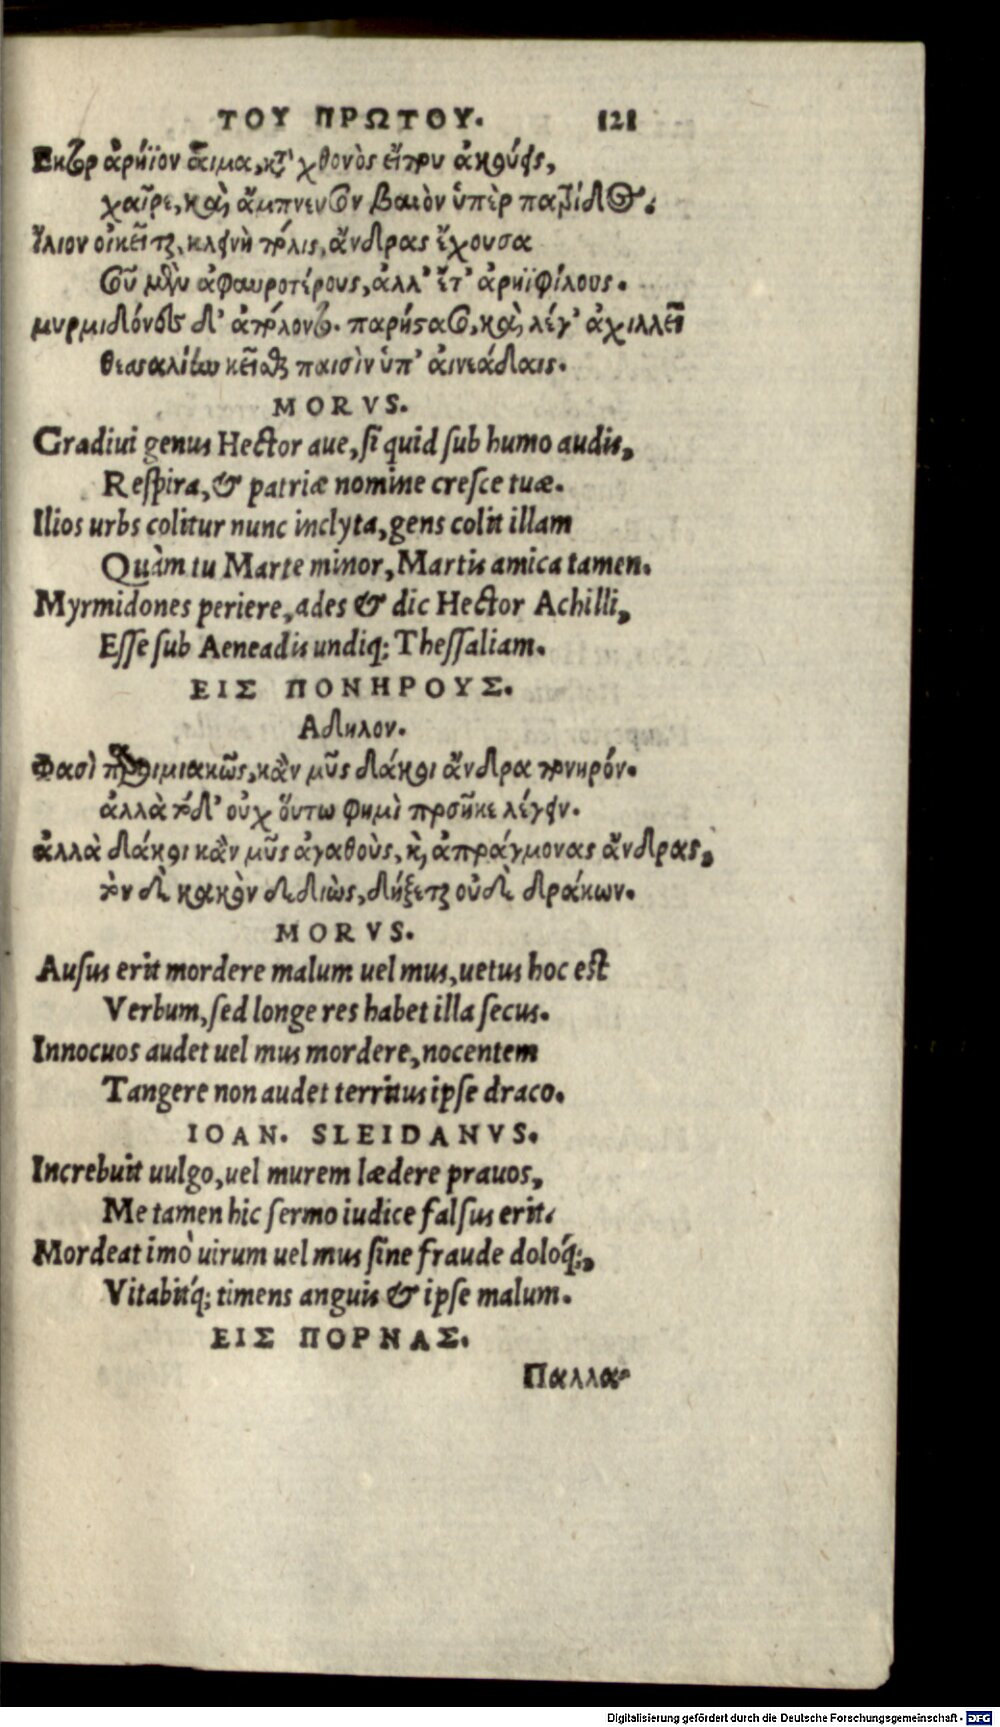 ΤΟΥ ΠΡΩΤΟΥ. 121
Εκτορ ἀρήϊον αἷμα, κτ' χθονὸς εἴ που ἀκούεις,
χαῖρε, καὶ ἄμπνευσον βαιὸν ὑπὲρ πατρίδος.
Ἴλιον οἰκεῖται κλεινὴ πόλις, ἄνδρας ἔχουσα
σοῦ μὲν ἀφαυροτέρους, ἀλλ' ἔτ' ἀρηϊφίλους.
μυρμιδόνες δ' ἀπόλοντο. παρίστασο, καὶ λέγ' ἀχιλλεῖ
θεσσαλίην κεῖσθαι πᾶσιν ὑπ' αἰνεάδαις.
MORVS.
Gradiui genus Hector aue, si quid sub humo audis,
Respira, & patriæ nomine cresce tuæ.
Ilios urbs colitur nunc inclyta, gens colit illam
Quàm tu Marte minor, Martis amica tamen.
Myrmidones periere, ades & dic Hector Achilli,
Esse sub Aeneadis undiq; Thessaliam.
ΕΙΣ ΠΟΝΗΡΟΥΣ.
Αδηλον.
Φασὶ παροιμιακῶς, κἂν μῦς δάκοι ἄνδρα πονηρόν.
ἀλλὰ τόδ' οὐχ ὅυτω φημὶ προσῆκε λέγειν.
ἀλλὰ δάκοι κἂν μῦς ἀγαθοὺς, κὶ ἀπράγμονας ἄνδρας,
τὸν δὲ κακὸν δεδιὼς, δήξεται οὐδὲ δράκων.
MORVS.
Ausus erit mordere malum uel mus, uetus hoc est
Verbum, sed longe res habet illa secus.
Innocuos audet uel mus mordere, nocentem
Tangere non audet territus ipse draco.
IOAN. SLEIDANVS.
Increbuit uulgo, uel murem lædere prauos,
Me tamen hic sermo iudice falsus erit.
Mordeat imò uirum uel mus sine fraude doloq́;,
Vitabitq́; timens anguis & ipse malum.
ΕΙΣ ΠΟΡΝΑΣ.
Παλλα-
Digitalisierung gefördert durch die Deutsche Forschungsgemeinschaft - DFG